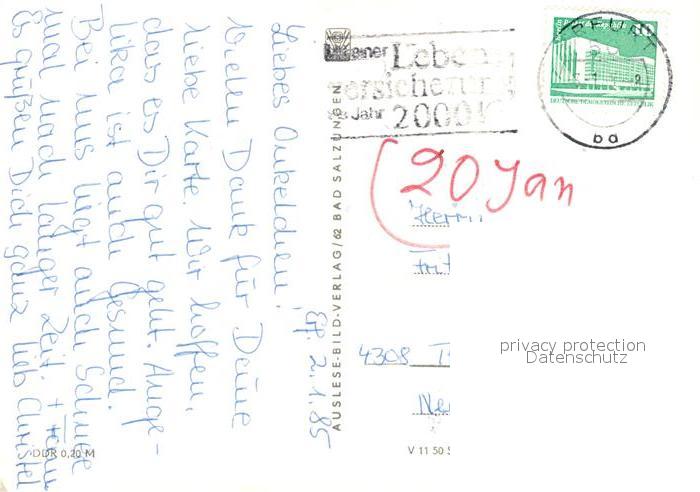 Liebes Onkelchen!
Ef. 2.1.85
Vielen Dank für Deine
liebe Karte. Wir hoffen,
das es Dir gut geht. Ange-
lika ist auch Gesund.
Bei uns liegt auch Schnee
mal nach langer Zeit.
Es grüßen Dich ganz lieb Christel
DDR 0,20 M
AUSLESE-BILD-VERLAG/62 BAD SALZUNGEN
Lebens
ersicherung
Jahr 2000!
ERFURT
bd
10
DEUTSCHE DEMOKRATISCHE REPUBLIK
20 Jan
Herrn
4308
V 11 50
privacy protection
Datenschutz